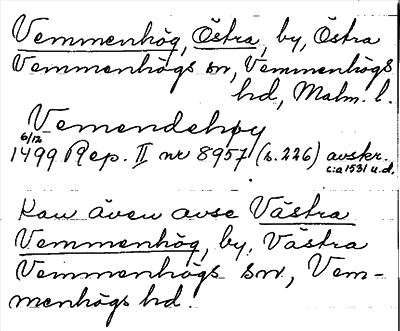 Vemmenhög, Östra, by, Östra
Vemmenhögs sn, Vemmenhögs
hd, Malm. l.
Vemendehøy
6/12
1499 Rep. II nr 8957 (s. 226) avskr.
c:a 1531 u.d.
Kan även avse Västra
Vemmenhög, by, Västra
Vemmenhögs sn, Vem-
menhögs hd.